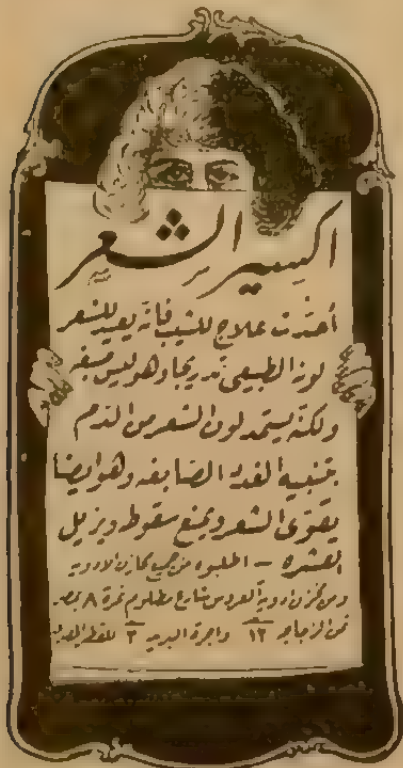 اكسير الشعر
أحدث علاج للشيب فانه يعيد للشعر
لونه الطبيعى تدريجا وهو ليس صبغه
ولكنه يستمد لون الشعر من الدم
بتنبيه الغدد الصابغه وهو ايضا
يقوى الشعر ويمنع سقوطه ويزيل
القشره – اطلبوه من جميع مخازن الادويه
ومن مخزن ادوية العروس شارع مظلوم نمرة ٨ بمصر
ثمن الزجاجه ١٢ واجرة البريد ٣ للقطر المصرى